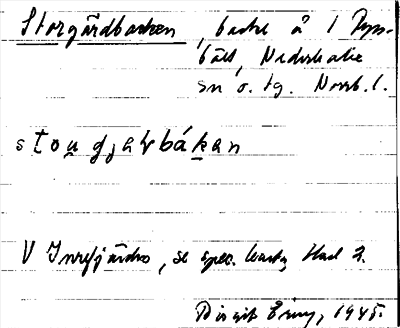 Storgårdbacken, backe å 1 Ryss-
bält, Nederkalix
sn o. tg. Norrb. l.
stou̱gjaɽbáḵan
V Innefjärden, se spec. karta blad 2.
Birgit Ering, 1945.